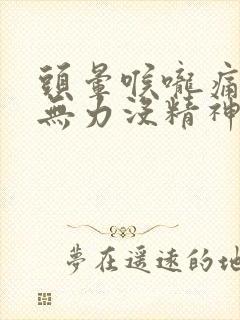 頭暈喉嚨痛
無力沒精神
夢在遥遠的地